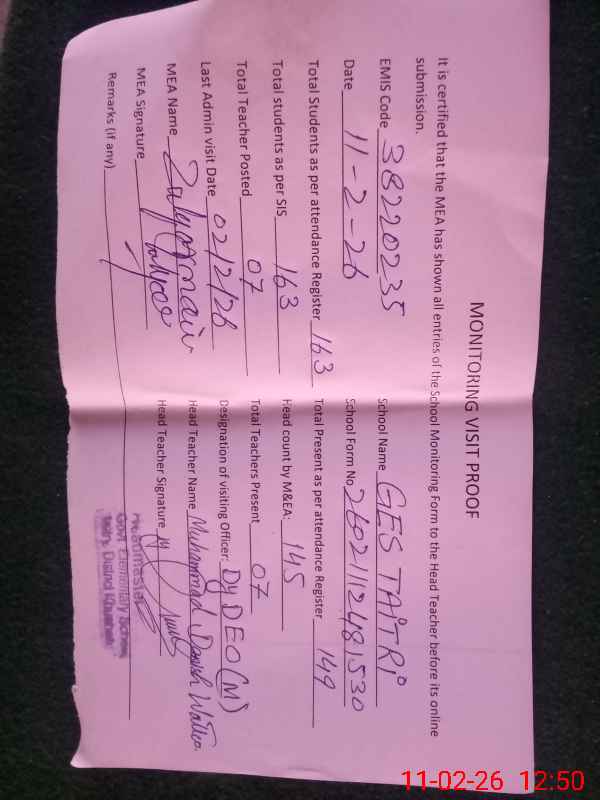 MONITORING VISIT PROOF
It is certified that the MEA has shown all entries of the School Monitoring Form to the Head Teacher before its online
submission.
EMIS Code 38220235 School Name GES TAITRI
Date 11-2-26 School Form No 26021112481530
Total Students as per attendance Register 163 Total Present as per attendance Register 149
Total students as per SIS 163 Head count by M&EA: 145
Total Teacher Posted 07 Total Teachers Present 07
Last Admin visit Date 02/2/26 Designation of visiting Officer: Dy DEO (M)
MEA Name Head Teacher Name Muhammad Danish
MEA Signature Head Teacher Signature
Remarks (if any)
Headmaster
Govt. Elementary School
District Khushab
11-02-26 12:50